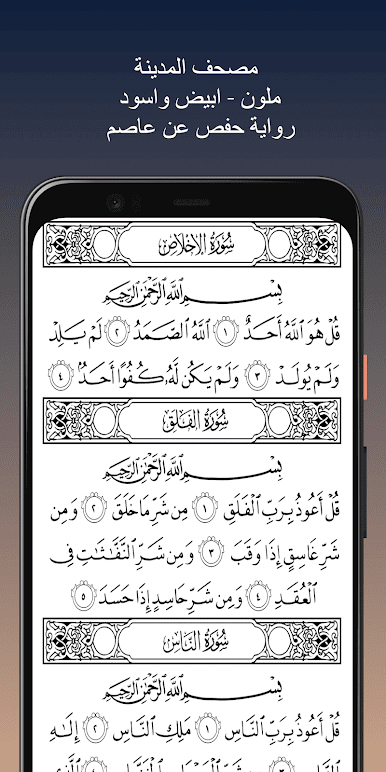 مصحف المدينة
ملون - ابيض واسود
رواية حفص عن عاصم
سُورَةُ الإِخْلَاصِ
بِسْمِ اللَّهِ الرَّحْمَٰنِ الرَّحِيمِ
قُلْ هُوَ اللَّهُ أَحَدٌ ١ اللَّهُ الصَّمَدُ ٢ لَمْ يَلِدْ
وَلَمْ يُولَدْ ٣ وَلَمْ يَكُن لَّهُ كُفُوًا أَحَدٌ ٤
سُورَةُ الفَلَقِ
بِسْمِ اللَّهِ الرَّحْمَٰنِ الرَّحِيمِ
قُلْ أَعُوذُ بِرَبِّ الْفَلَقِ ١ مِن شَرِّ مَا خَلَقَ ٢ وَمِن
شَرِّ غَاسِقٍ إِذَا وَقَبَ ٣ وَمِن شَرِّ النَّفَّاثَاتِ فِي
الْعُقَدِ ٤ وَمِن شَرِّ حَاسِدٍ إِذَا حَسَدَ ٥
سُورَةُ النَّاسِ
بِسْمِ اللَّهِ الرَّحْمَٰنِ الرَّحِيمِ
قُلْ أَعُوذُ بِرَبِّ النَّاسِ ١ مَلِكِ النَّاسِ ٢ إِلَٰهِ